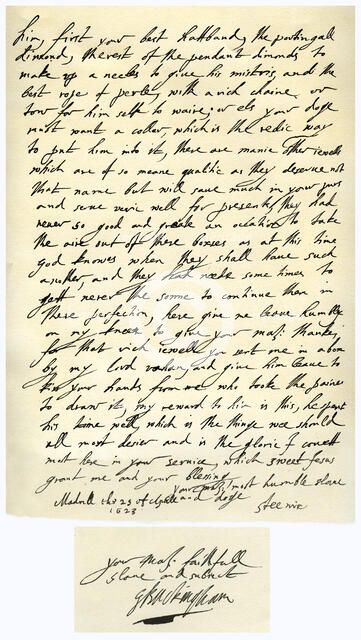 him, first your best hattband, the portingall
dimond, the rest of the pendant dimonds to
make up a necles to give his mistris, and the
best rope of perles, with a rich chaine or
tow for him self to waire, or els your doge
must want a coller, which is the redie way
to put him into it, there are manie other jewells
which are of so meane qualitie as they deserve not
that name but will save much in your purs
and serve verie well for presents, they had
never so good and greate an occation to take
the aire out of there boxses as at this time
god knowes when they shall have such
another, and they had neede some times to
gett never the sonne to continue them in
there perfection, here give me leave humblie
on my knees to give your maj: thankes,
for that rich jewell you sent me in a box
by my lord vahan and give him leave to
kis your hands from me who tooke the paines
to draw it, my reward to him is this, he spent
his time well, which is the things wee should
all most desier and is the glorie I covett
most here in your service, which sweet Jesus
grant me and your blessing
your maj: most humble slave
Madrill the 25 of Aprill and doge
1623 Steenie
your maj: faithfull
slave and subiect
GBuckingham